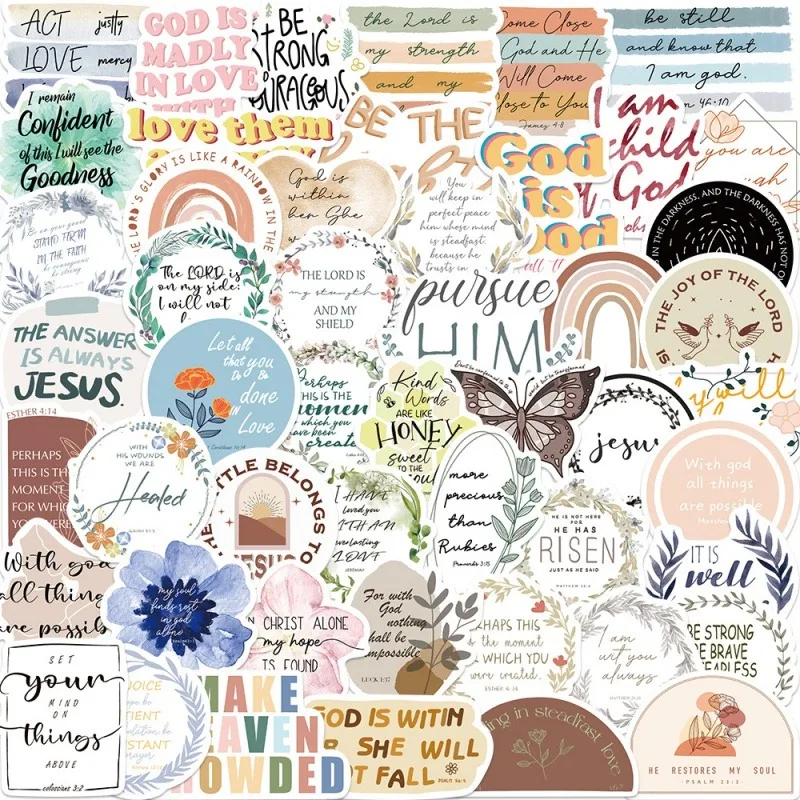 ACT justly
LOVE mercy
GOD IS
MADLY
IN LOVE
WITH
BE
STRONG
COURAGEOUS
the Lord is
my strength
and my
Come Close
God and He
Will Come
Close to You
James 4:8
be still
and know that
I am god.
46:10
I remain
Confident
of this I will see the
Goodness
love them
BE THE
God
is
good
I am
child
God
you are
THE LORD'S GLORY IS LIKE A RAINBOW IN THE
God is
within
her She
You
will keep in
perfect peace
him whose mind
is steadfast,
because he
trusts in
IN THE DARKNESS, AND THE DARKNESS HAS NOT
Be on your guard
STAND FIRM
IN THE FAITH
be courageous
be strong
The LORD is
on my side;
I will not
THE LORD IS
my strength
AND MY
SHIELD
pursue
HIM
THE JOY OF THE LORD
IS
THE ANSWER
IS ALWAYS
JESUS
Let all
that you
Do Be
done
IN Love
Corinthians 16:14
Perhaps
THIS IS THE
moment
for which
you have been
created
Kind
Words
ARE LIKE
HONEY
sweet
TO THE
Don't be conformed to
but be transformed
jesus
will
ESTHER 4:14
PERHAPS
THIS IS THE
MOMENT
FOR WHICH
YOU WERE
WITH
HIS WOUNDS
WE ARE
Healed
LITTLE BELONGS TO
JESUS
I HAVE
loved you
WITH AN
everlasting
LOVE
JEREMIAH
more
precious
than
Rubies
Proverbs 3:15
HE IS NOT HERE
FOR
HE HAS
RISEN
JUST AS HE SAID
MATTHEW 28:6
With god
all things
are possible
IT IS
well
With god
all things
are possible
my soul
finds rest
in god
alone
CHRIST ALONE
my hope
IS FOUND
For with
God
nothing
shall be
impossible
LUCK 1:37
PERHAPS THIS
is the moment
FOR WHICH YOU
were created.
ESTHER 4:14
I am
with you
always
BE STRONG
BE BRAVE
FEARLESS
SET
your
MIND
ON
things
ABOVE
colossians 3:2
REJOICE
hope be
PATIENT
be
CONSTANT
prayer
MAKE
HEAVEN
CROWDED
GOD IS WITIN
R SHE WILL
NOT FALL
PSALM 46:5
in steadfast love
HE RESTORES MY SOUL
PSALM 23:3